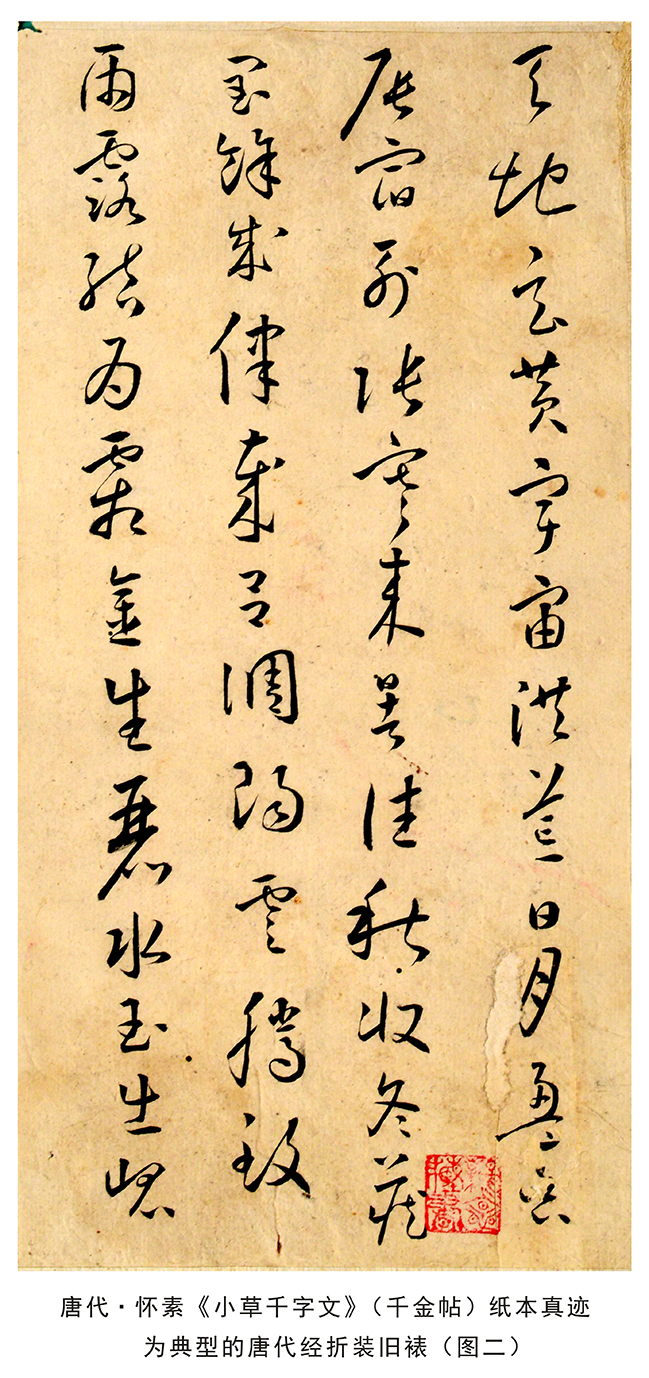 天地玄黄宇宙洪荒日月盈昃
辰宿列張寒來暑往秋收冬藏
閏餘成律歲呂調陽雲騰致
雨露結為霜金生麗水玉出崐
唐代·怀素《小草千字文》（千金帖）纸本真迹
为典型的唐代经折装旧裱（图二）